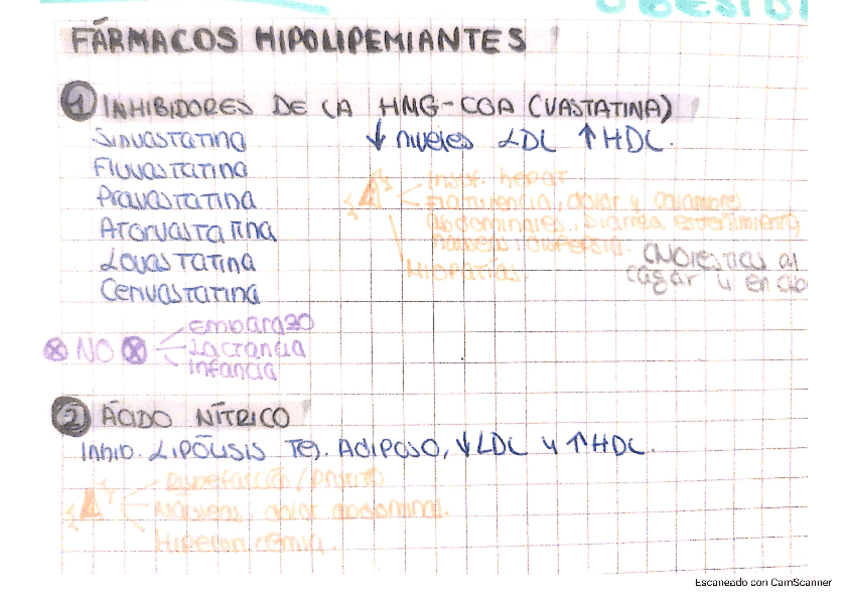 FÁRMACOS HIPOLIPEMIANTES
1 INHIBIDORES DE LA HMG-COA (VASTATINA)
Simvastatina ↓ niveles LDL ↑ HDL.
Fluvastatina
Pravastatina
Atorvastatina
Lovastatina
Cerivastatina
Insuf. hepat
Flatulencia, dolor y calambres
abdominales, diarrea estreñimiento,
náuseas, dispepsia.
Miopatías.
(Molestias al
cagar y en
NO embarazo
Lactancia
infancia
2 ÁCIDO NÍTRICO
Inhib. LIPÓLISIS TEJ. ADIPOSO, ↓ LDL y ↑ HDL.
Rubefacción/prurito
Náuseas, dolor abdominal.
Escaneado con CamScanner